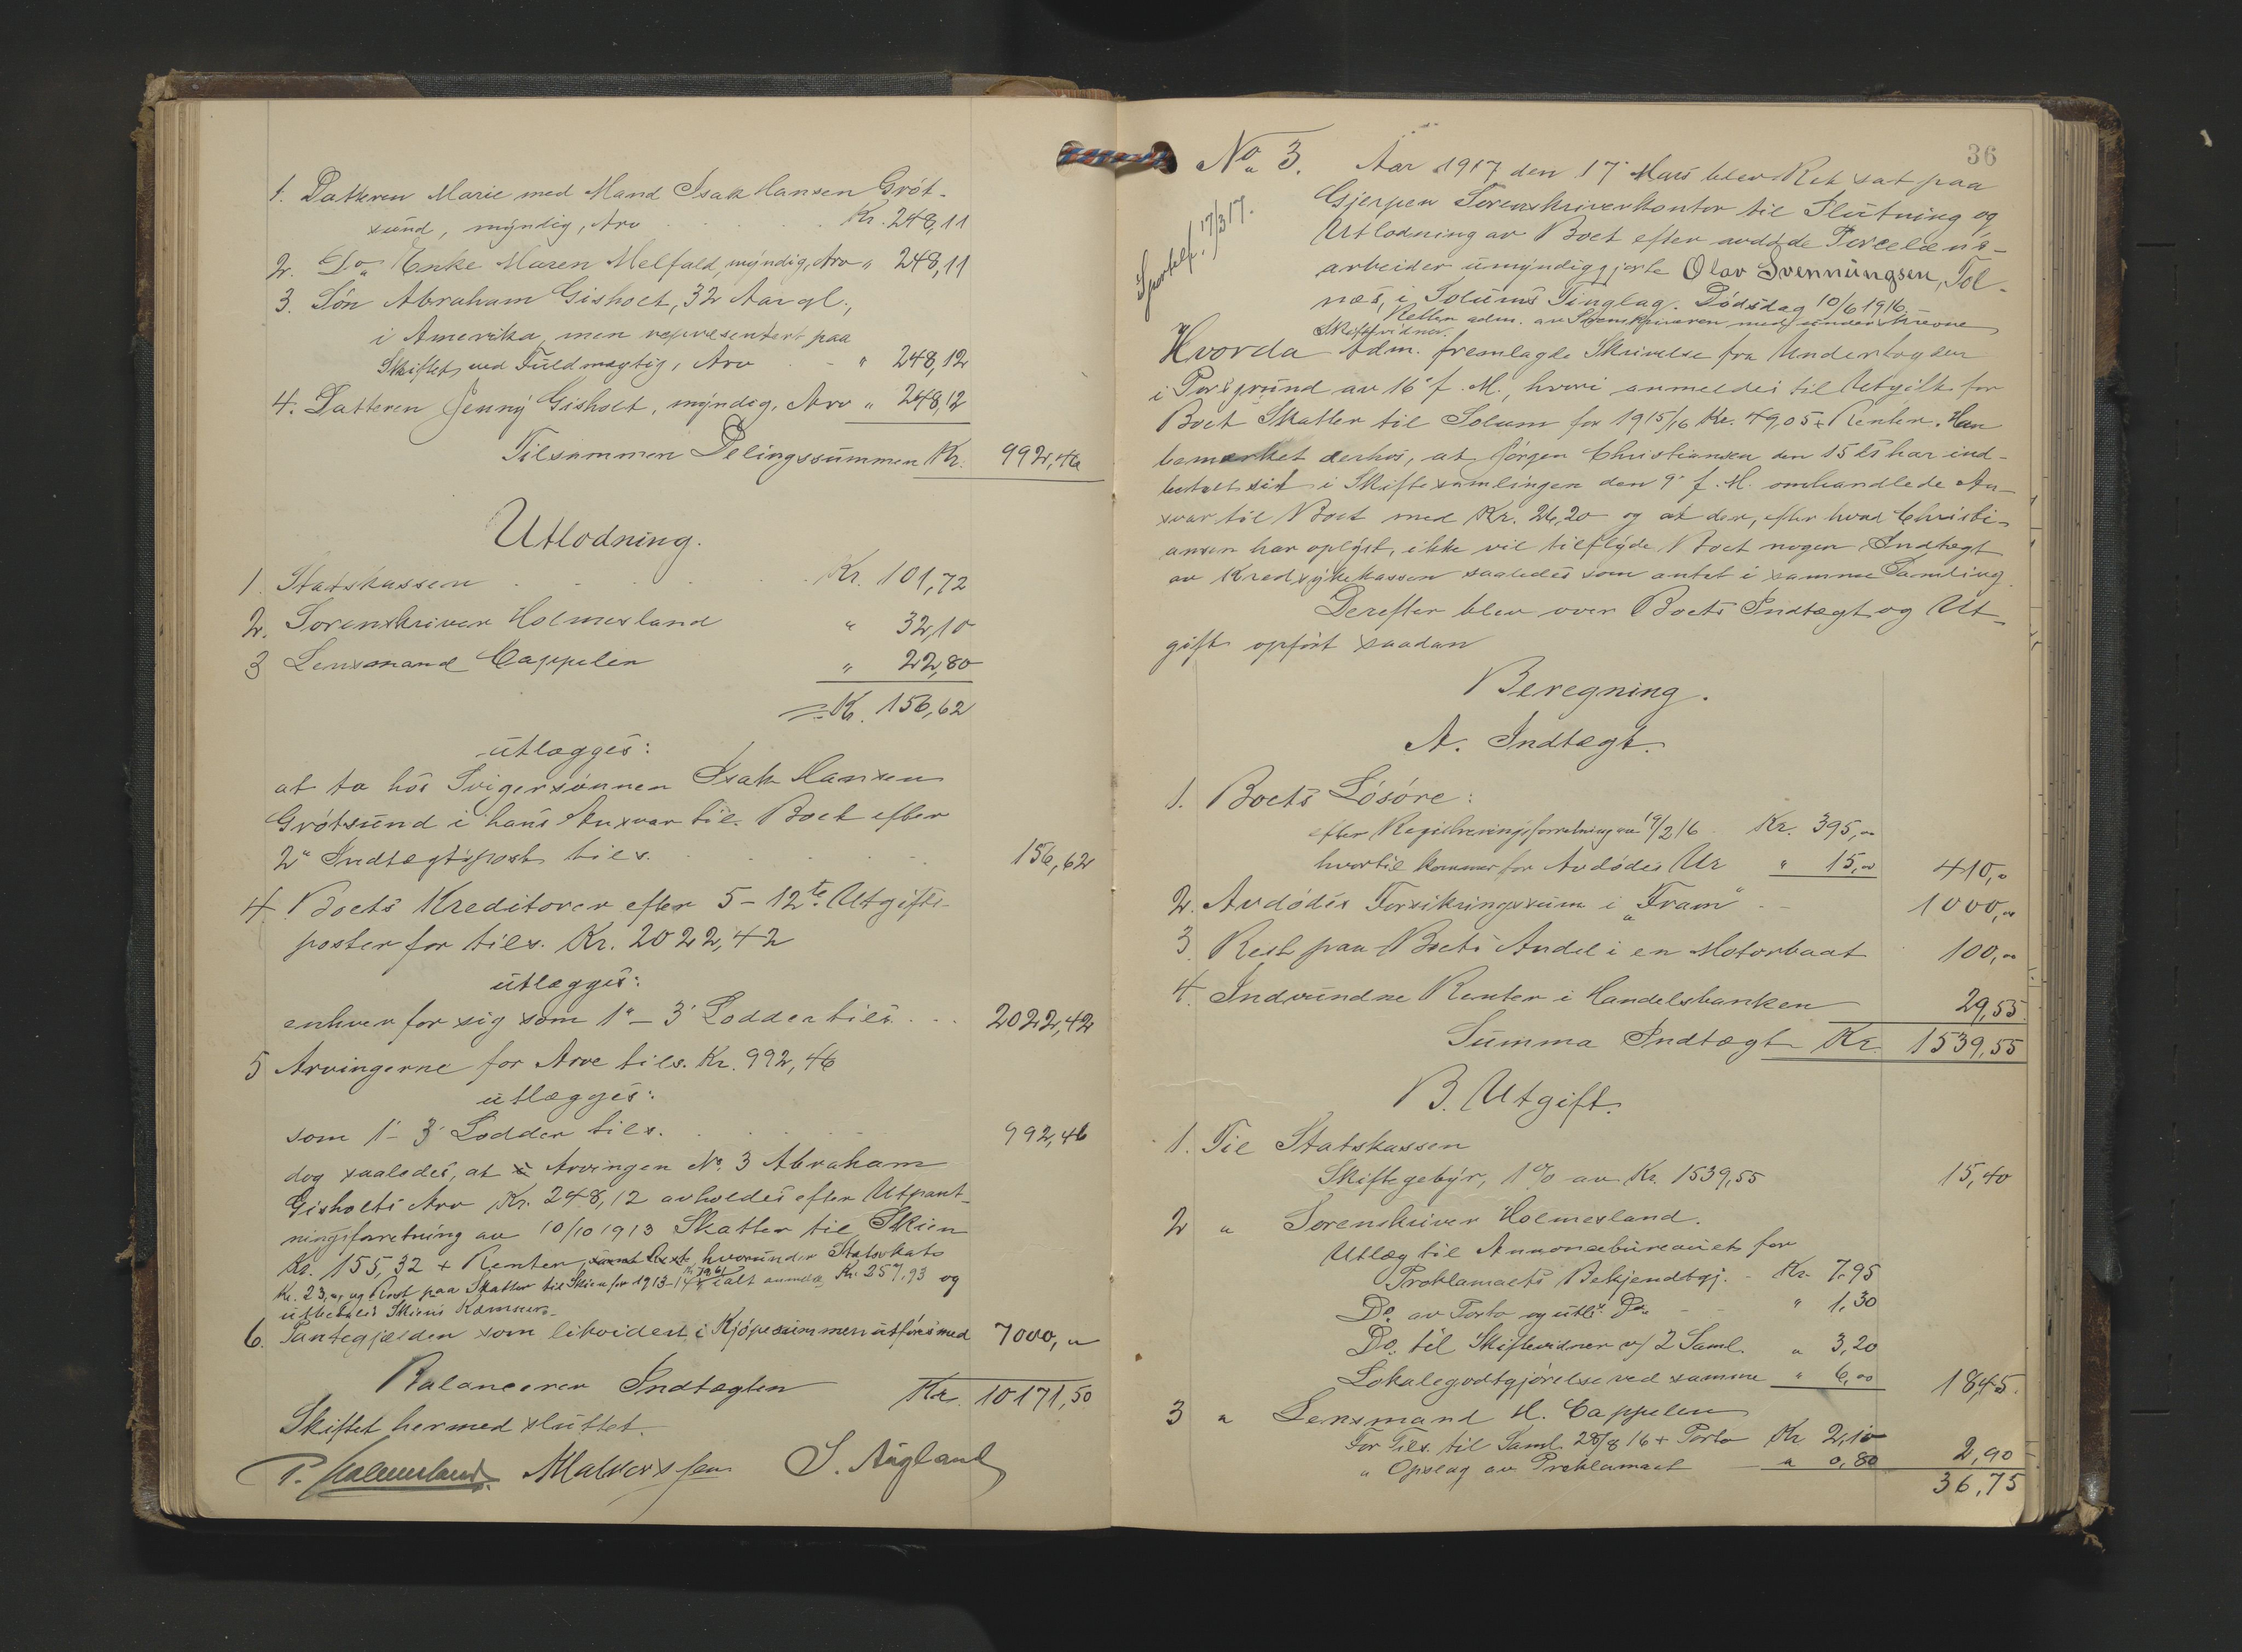 1. Datteren Marie med Mand Isak Hansen Gröt-
sund, myndig, Arv . . . . . Kr. 248,11
2. Do Enke Maren Melfald, myndig, Arv " 248,11
3. Sön Abraham Gisholt, 32 Aar gl.,
i Amerika, men representert paa
Skiftet ved Fuldmægtig, Arv . - " 248,12
4. Datteren Jenny Gisholt, myndig, Arv " 248,12
Tilsammen Delingssummen Kr. 992,46
Utlodning.
1. Statskassen . . . . . . Kr. 101,72
2. Sorenskriver Holmesland " 32,10
3 Lensmand Cappelen " 22,80
= Kr. 156,62
utlægges:
at ta hos Svigersønnen Isak Hansen
Grötsund i hans Ansvar til Boet efter
2" Indtægtspost tils. . . . . . . 156,62
4. Boets Kreditorer efter 5-12te Utgifts-
poster for tils. Kr. 2022,42
utlægges:
enhver for sig som 1"-3' Lodder tils. . . . 2022,42
5 Arvingerne for Arve tils. Kr. 992,46
utlægges:
som 1'-3' Lodder tils. . . . . 992,46
dog saaledes, at Arvingen No. 3 Abraham
Gisholts Arv Kr. 248,12 avholdes efter Utpant-
ningsforretning av 10/10 1913 Skatter til Skien
Kr. 155,32 + Renter, hvorunder Statsskat
Kr. 23,", og Rest paa Skatter til Skien for 1913-14 ialt anmeldt Kr. 257,93 og
utbetales Skiens Kæmner.
6. Pantegjælden som likvidert i Kjöpesummen utföres med 7000,"
Balancerer Indtægten Kr. 10171,50
Skiftet hermed sluttet.
P. Holmesland. S. Augland
36
No 3. Aar 1917 den 17' Mars blev Ret sat paa
Gjerpen Sorenskriverkontor til Slutning og
Utlodning av Boet efter avdøde Porcelæns-
arbeider umyndiggjorte Olav Svennungsen, Tol-
næs, i Solums Tinglag. Dödsdag 10/6 1916.
Retten adm. av Sorenskriveren med underskrevne
Skiftevidner.
Sportelf. 17/3 17.
Hvorda Adm. fremlagde Skrivelse fra Underfogden
i Porsgrund av 16' f. M., hvori anmeldes til Utgift for
Boet Skatter til Solum for 1915/16 Kr. 49,05 + Renter. Han
bemerket derhos, at Jörgen Christiansen den 15 ds har ind-
betalt sit i Skiftesamlingen den 9' f. M. omhandlede An-
svar til Boet med Kr. 26,20 og at der, efter hvad Christi-
ansen har oplyst, ikke vil tilflyde Boet nogen Indtægt
av Kredssykekassen saaledes som antat i samme Samling.
Derefter blev over Boets Indtægt og Ut-
gift opført saadan
Beregning.
A. Indtægt.
1. Boets Lösöre:
efter Registreringsforretning av 19/2 16 Kr. 395,00
hvortil kommer for Avdödes Ur " 15,00 410,"
2. Avdödes Forsikringssum i "Fram" - - 1000,"
3. Rest paa Boets Andel i en Motorbaat 100,"
4. Indvundne Renter i Handelsbanken 29,55
Summa Indtægt Kr. 1539,55
B. Utgift.
1. Til Statskassen
Skiftegebyr, 1% av Kr. 1539,55 15,40
2 " Sorenskriver Holmesland.
Utlæg til Annoncebureauet for
Proklamaets Bekjendtgj. - Kr. 7,95
Do. av Porto og utl. Do. - - " 1,30
Do. til Skiftevidner v/ 2 Saml. " 3,20
Lokalegodtgjörelse ved samme " 6,00 18,45.
3 " Lensmand H. Cappelen
For Tils. til Saml. 28/8 16 + Porto Kr 2,10
" Opslag av Proklamaet " 0,80 2,90
36,75